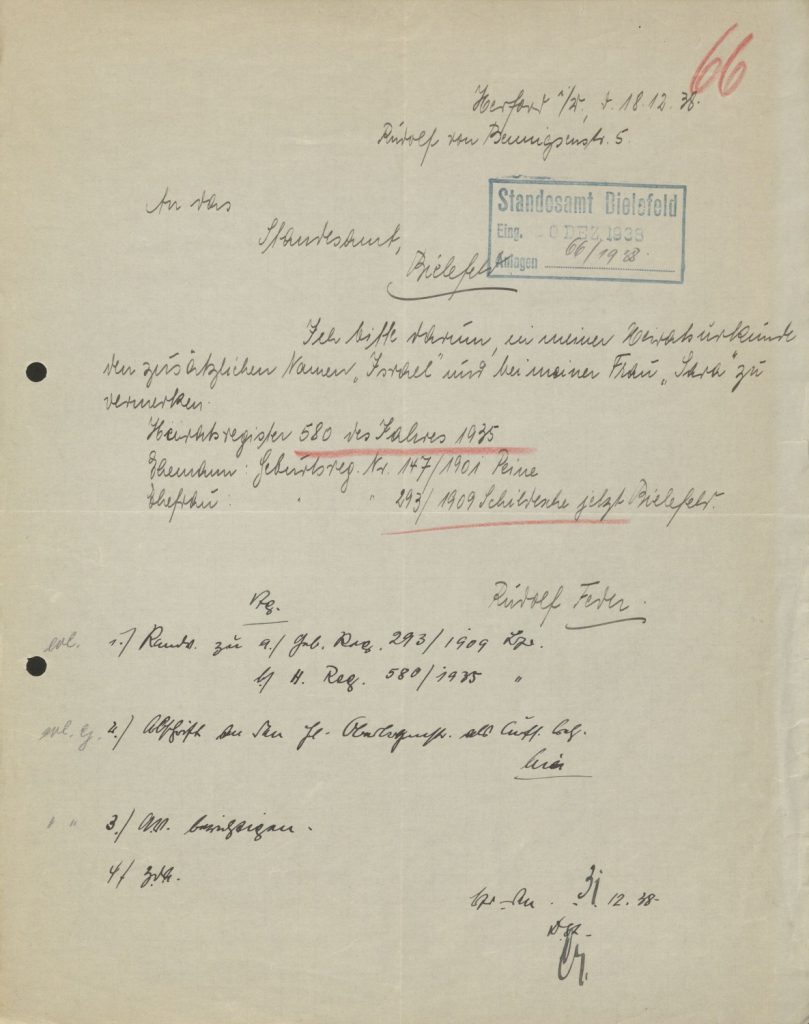 66
Herford i/W, d. 18.12.38.
Rudolf von Bennigsenstr. 5.
An das
Standesamt,
Bielefeld
Standesamt Bielefeld
Eing. 0 DEZ 1938
Anlagen 66/1938.
Ich bitte darum, in meiner Heiratsurkunde
den zusätzlichen Namen „Israel“ und bei meiner Frau „Sara“ zu
vermerken.
Heiratsregister 580 des Jahres 1935
Ehemann: Geburtsreg. Nr. 147/1901 Peine
Ehefrau: " " 293/1909 Schildesche jetzt Bielefeld.
Rudolf Feder.
Vfg.
1./ Randv. zu a./ Geb. Reg. 293/1909
b/ H. Reg. 580/1935 "
2./ Abschrift an den
hier
" " 3./ bescheinigen.
4/ z.d.A.
31.12.38.